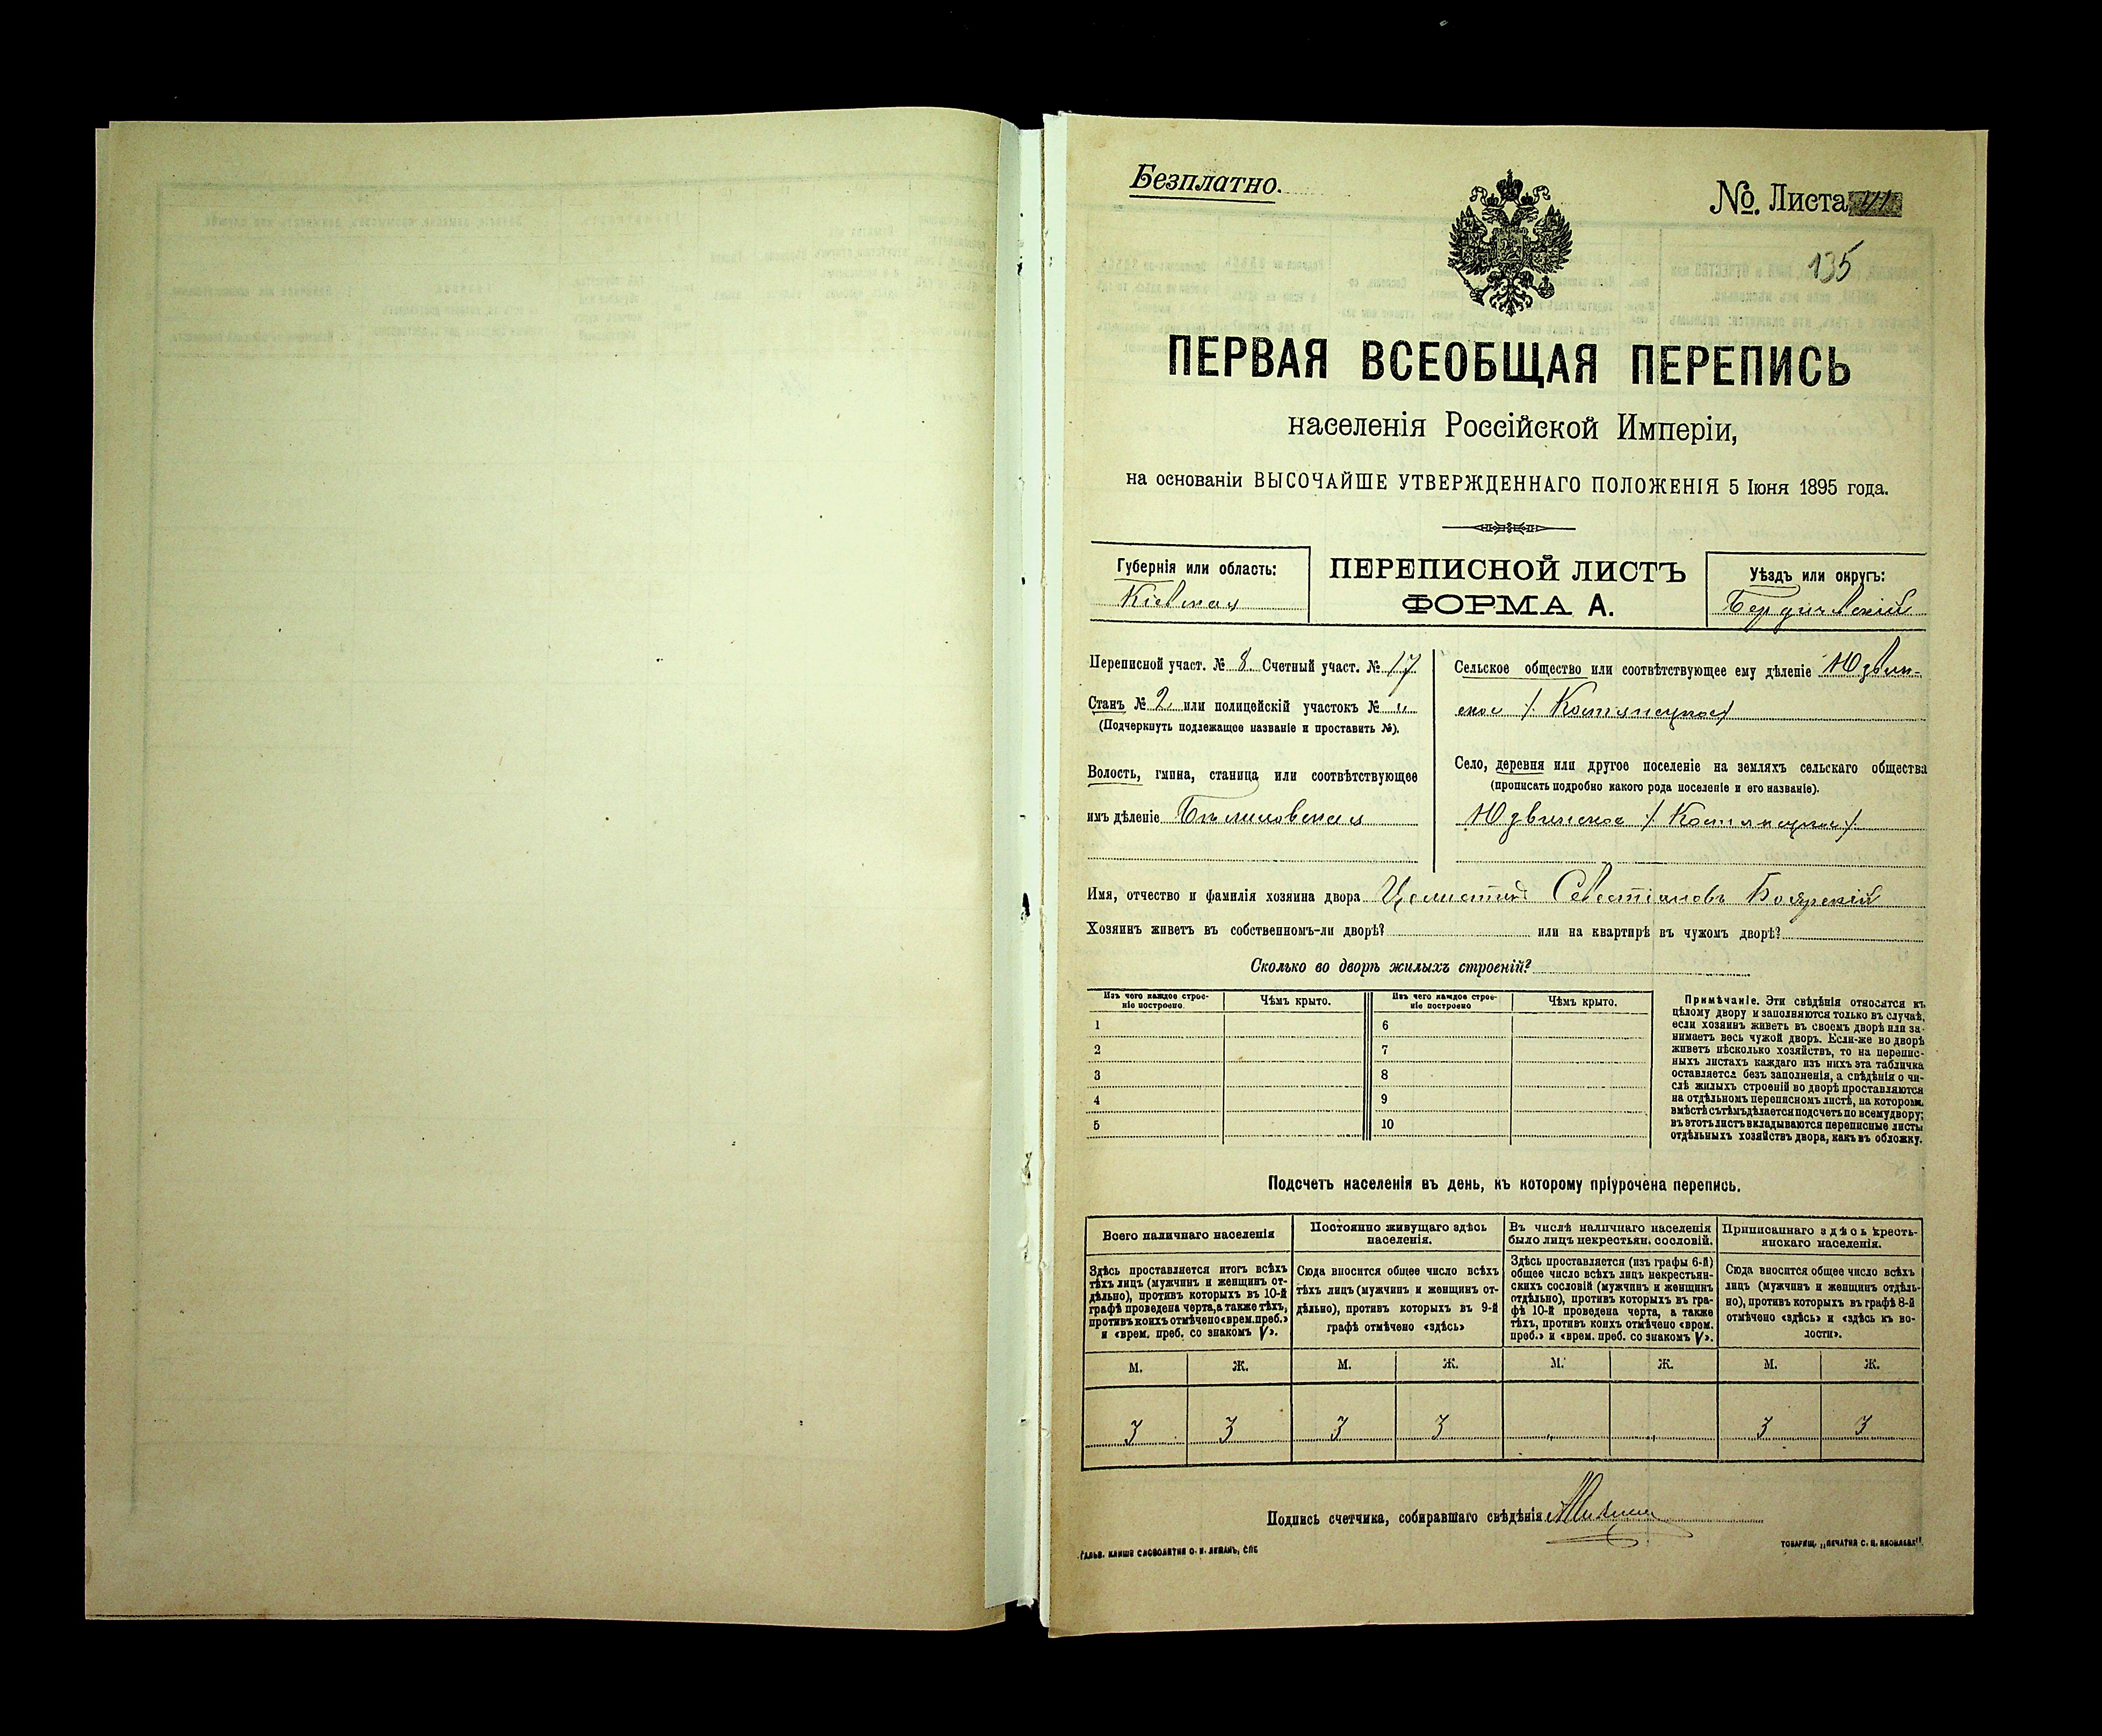 Безплатно.
№. Листа 41
135
ПЕРВАЯ ВСЕОБЩАЯ ПЕРЕПИСЬ
населенія Россійской Имперіи,
на основаніи ВЫСОЧАЙШЕ УТВЕРЖДЕННАГО ПОЛОЖЕНІЯ 5 Іюня 1895 года.
Губернія или область:
Кіевская
ПЕРЕПИСНОЙ ЛИСТЪ
ФОРМА А.
Уѣздъ или округъ:
Бердичевскій
Переписной участ. № 8 Счетный участ. № 17
Станъ № 2 или полицейскій участокъ № „
(Подчеркнуть подлежащее названіе и проставить №).
Волость, гмина, станица или соотвѣтствующее
имъ дѣленіе Бѣлиловская
Сельское общество или соотвѣтствующее ему дѣленіе Юдвин-
ское /
Село, деревня или другое поселеніе на земляхъ сельскаго общества
(прописать подробно какого рода поселеніе и его названіе).
Юдвинское /
Имя, отчество и фамилія хозяина двора Целистинъ Севестіановъ Боярскій
Хозяинъ живетъ въ собственномъ-ли дворѣ? или на квартирѣ въ чужомъ дворѣ?
Сколько во дворѣ жилыхъ строеній?
Изъ чего каждое строе-
ніе построено.
Чѣмъ крыто.
Изъ чего каждое строе-
ніе построено
Чѣмъ крыто.
1 6
2 7
3 8
4 9
5 10
Примѣчаніе. Эти свѣдѣнія относятся къ
цѣлому двору и заполняются только въ случаѣ,
если хозяинъ живетъ въ своемъ дворѣ или за-
нимаетъ весь чужой дворъ. Если-же во дворѣ
живетъ нѣсколько хозяйствъ, то на перепис-
ныхъ листахъ каждаго изъ нихъ эта табличка
оставляется безъ заполненія, а свѣдѣнія о чи-
слѣ жилыхъ строеній во дворѣ проставляются
на отдѣльномъ переписномъ листѣ, на которомъ
вмѣстѣ съ тѣмъ дѣлается подсчетъ по всему двору;
въ этотъ листъ вкладываются переписные листы
отдѣльныхъ хозяйствъ двора, какъ въ обложку.
Подсчетъ населенія въ день, къ которому пріурочена перепись.
Всего наличнаго населенія
Здѣсь проставляется итогъ всѣхъ
тѣхъ лицъ (мужчинъ и женщинъ от-
дѣльно), противъ которыхъ въ 10-й
графѣ проведена черта, а также тѣхъ,
противъ коихъ отмѣчено «врем. преб.»
и «врем. преб. со знакомъ V».
Постоянно живущаго здѣсь
населенія.
Сюда вносится общее число всѣхъ
тѣхъ лицъ (мужчинъ и женщинъ от-
дѣльно), противъ которыхъ въ 9-й
графѣ отмѣчено «здѣсь»
Въ числѣ наличнаго населенія
было лицъ некрестьян. сословій.
Здѣсь проставляется (изъ графы 6-й)
общее число всѣхъ лицъ некрестьян-
скихъ сословій (мужчинъ и женщинъ
отдѣльно), противъ которыхъ въ гра-
фѣ 10-й проведена черта, а также
тѣхъ, противъ коихъ отмѣчено «врем.
преб.» и «врем. преб. со знакомъ V».
Приписаннаго здѣсь кресть-
янскаго населенія.
Сюда вносится общее число всѣхъ
лицъ (мужчинъ и женщинъ отдѣль-
но), противъ которыхъ въ графѣ 8-й
отмѣчено «здѣсь» и «здѣсь къ во-
лости».
М. Ж. М. Ж. М. Ж. М. Ж.
3 3 3 3 „ „ 3 3
Подпись счетчика, собиравшаго свѣдѣнія